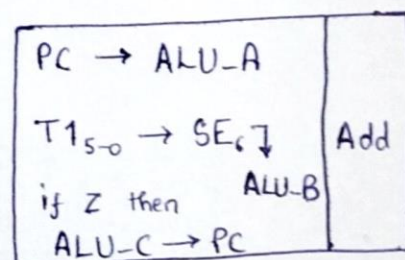 PC → ALU_A
T1₅₋₀ → SE₆ ↴ Add
ALU_B
if Z then
ALU_C → PC